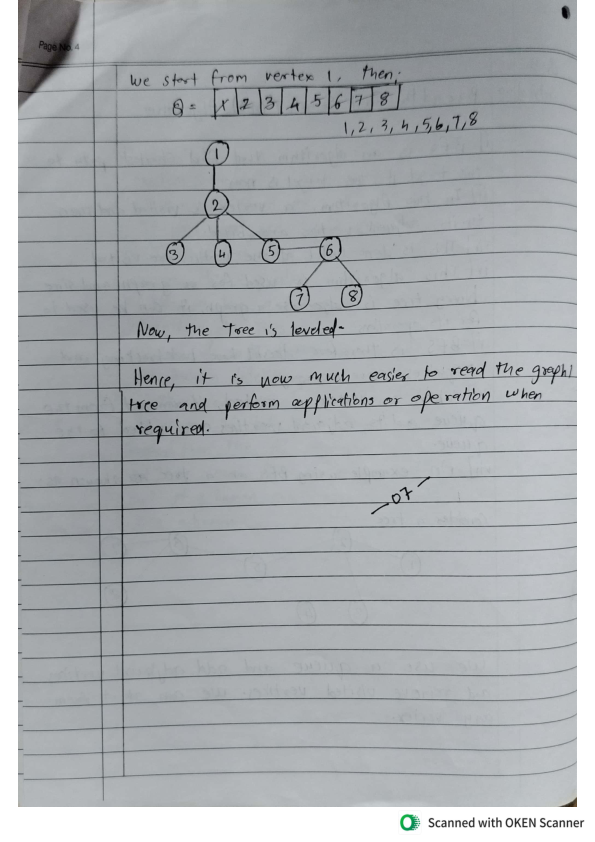 Page No. 4
We start from vertex 1, then,
Q = 1 2 3 4 5 6 7 8
1, 2, 3, 4, 5, 6, 7, 8
1
2
3 4 5 6
7 8
Now, the tree is leveled-
Hence, it is now much easier to read the graph/
tree and perform applications or operation when
required.
-07-
Scanned with OKEN Scanner